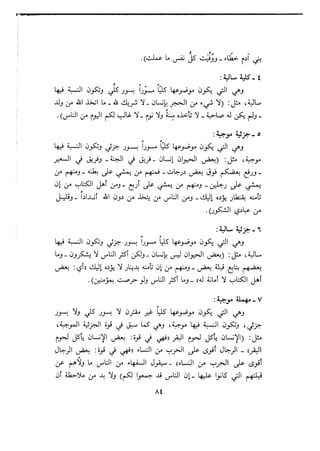 بني آدم خطّاء - ووُفّيت كلُّ نفس ما عملت).
٤ - كلية سالبة :
وهي التي يكون موضوعها كليّاً مسوّراً بسور كلّي وتكون النسبة فيها
سالبة، مثل : (لا شيء من الحجر بإنسان - لا شريك لله - ما اتخذ الله من ولد
- ولم يكن له صاحبة - لا تأخذه سِنة ولا نوم - لا غالب لكم اليوم من الناس).
٥ - جزئية موجبة :
وهي التي يكون موضوعها كليّاً مسوراً بسور جزئي وتكون النسبة فيها
موجبة، مثل : (بعض الحيوان إنسان - فريق في الجنة - وفريق في السعير
ورفع بعضكم فوق بعض درجات - فمنهم من يمشي على بطنه - ومنهم من
يمشي على رجلين - ومنهم من يمشي على أربع - ومن أهل الكتاب من إن
تأمنه بقنطار يؤده إليك - ومن الناس من يتخذ من دون الله أنداداً - وقليل
من عبادي الشكور).
٦ - جزئية سالبة :
وهي التي يكون موضوعها كليّاً مسوراً بسور جزئي وتكون النسبة فيها
سالبة، مثل : (بعض الحيوان ليس إنساناً - ولكن أكثر الناس لا يشكرون - وما
بعضهم بتابع قبلة بعض - ومنهم من إن تأمنه بدينار لا يؤده إليك (أي : بعض
أهل الكتاب لا أمانة له) - وما أكثر الناس ولو حرصت بمؤمنين).
٧ - مهملة موجبة :
وهي التي يكون موضوعها كلي غير مقترن لا بسور كلي ولا بسور
جزئي، وتكون النسبة فيها موجبة، وهي كما سبق في قوة الجزئية الموجبة،
مثل : (الإنسان يأكل لحم البقر (فهي في قوة : بعض الإنسان يأكل لحم
البقر) - الرجال أقوى على الحرب من النساء (فهي في قوة : بعض الرجال
أقوى على الحرب من النساء) - سيقول السفهاء من الناس ما ولّاهم عن
قبلتهم التي كانوا عليها - إن الناس قد جمعوا لكم) ولا بد من ملاحظة أن
٨٤